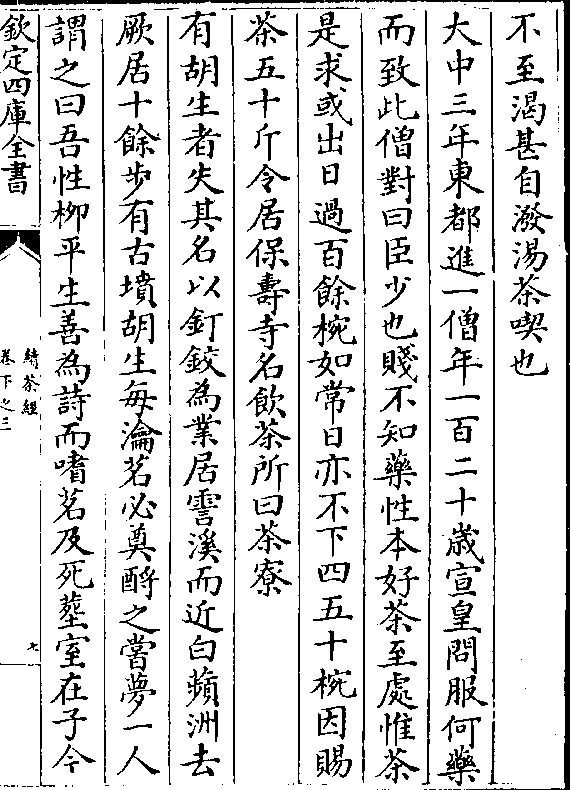 不至渴甚自潑湯茶喫也
大中三年東都進一僧年一百二十歲宣皇問服何藥
而致此僧對曰臣少也賤不知藥性本好茶至處惟茶
是求或出日過百餘椀如常日亦不下四五十椀因賜
茶五十斤令居保壽寺名飲茶所曰茶寮
有胡生者失其名以釘鉸為業居霅溪而近白蘋洲去
厥居十餘步有古墳胡生每瀹茗必奠酹之嘗夢一人
謂之曰吾性栁平生善為詩而嗜茗及死塟室在子今
欽定四庫全書
續茶經
卷下之三
九